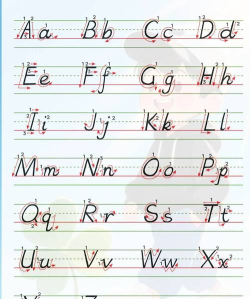 Aa Bb Cc Dd
Ee Ff Gg Hh
Ii Jj Kk Ll
Mm Nn Oo Pp
Qq Rr Ss Tt
Uu Vv Ww Xx